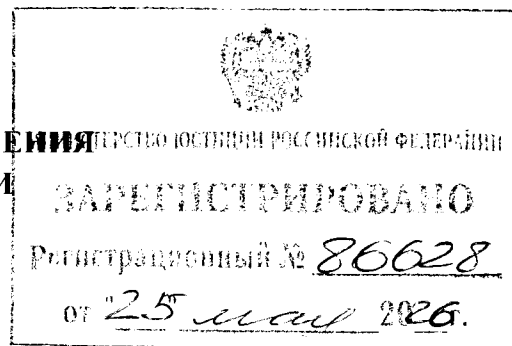 ЕНИЯ
И
МИНИСТЕРСТВО ЮСТИЦИИ РОССИЙСКОЙ ФЕДЕРАЦИИ
ЗАРЕГИСТРИРОВАНО
Регистрационный № 86628
от "25" мая 2026г.